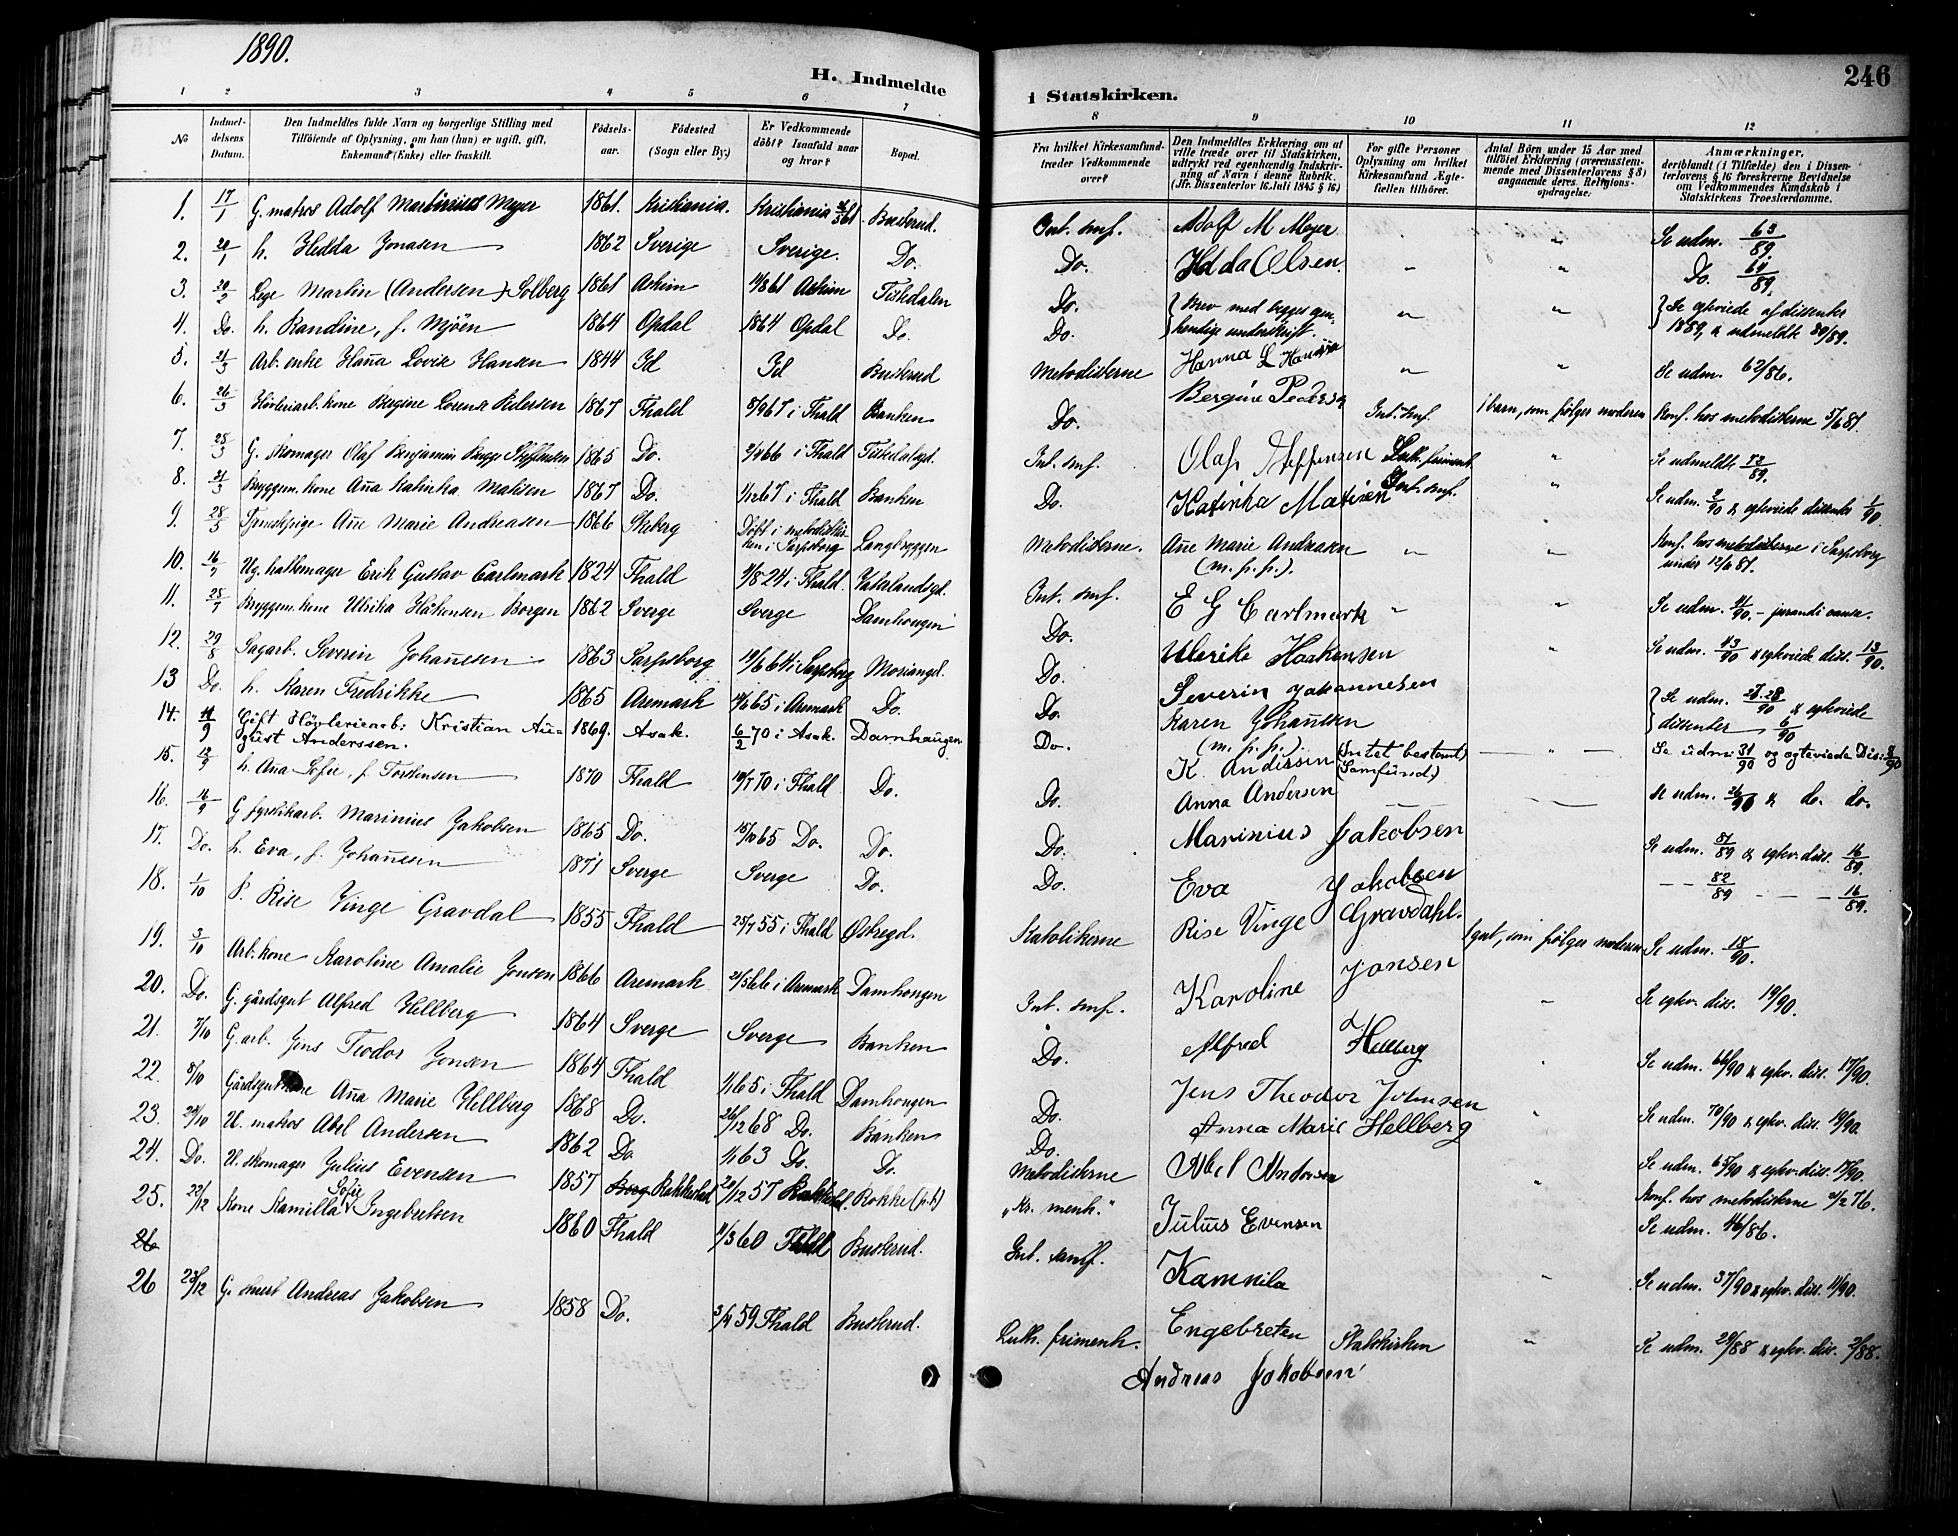 1890.
H. Indmeldte i Statskirken.
246
1 2 3 4 5 6 7 8 9 10 11 12
No
Indmeldelsens Datum.
Den Indmeldtes fulde Navn og borgerlige Stilling med Tilföiende af Oplysning, om han (hun) er ugift, gift, Enkemand (Enke) eller fraskilt.
Födselsaar.
Födested (Sogn eller By.)
Er Vedkommende döbt? Isaafald naar og hvor?
Bopæl.
Fra hvilket Kirkesamfund træder Vedkommende over?
Den Indmeldtes Erklæring om at ville træde over til Statskirken, udtrykt ved egenhændig Indskrivning af Navn i denne Rubrik. (Jfr. Dissenterlov 16. Juli 1845 § 16)
For gifte Personer Oplysning om hvilket Kirkesamfund Ægtefællen tilhörer.
Antal Börn under 15 Aar med tilföiet Erklæring (overensstemmende med Dissenterlovens § 8) angaaende deres Religionsopdragelse.
Anmærkninger, deriblandt (i Tilfælde) den i Dissenterlovens § 16 foreskrevne Bevidnelse om Vedkommendes Kundskab i Statskirkens Troeslærdomme.
1. 17/1 G. matros Adolf Martinius Meyer 1861. Kristiania. Kristiania Buskrud. Int. smf. Adolf M Meyer „ Se udm. 63/89
2. 20/1 h. Hedda Jonasen 1862 Sverige Sverige. Do. Do. Hdda Olsen. „ „ Do. 64/89.
3. 20/2 Lege Martin (Andersen) Solberg 1861 Askim Askim Tistedalen Do. Brev med begges egenhendige underskrift. „ „ Se egteviede af dissenter 1889, & udmeldt 80/89.
4. Do. h. Randine, f. Mjöen 1864 Opdal 1864 Opdal Do. Do.
5. 21/3 Arb. enke Hana Lovise Hansen 1844 Id Id Buskrud Metodisterne Hanna L Hansen „ „ Se udm. 62/86.
6. 26/3 Hövleriarb. kone Bergine Lorense Pedersen 1867 Fhald 8/9 67 i Fhald Banken Do. Bergine Pedersen Int. smf. 1 barn, som fölger moderen Konf. hos metodisterne 5/6 81.
7. 28/3 G. skomager Olaf Benjamin Steffensen 1865 Do. i Fhald Tistedalsgd. Int. smf. Olaf Steffensen Luth. frimenh. „ Se udmeldt 82/89.
8. 31/3 Bryggem. kone Ana Katinka Matisen 1867 Do. 1/12 67 i Fhald Banken Do. Katinka Matisen Int. smf. „ Se udm. 2/90 & egteviede dissenter 1/90.
9. 28/5 Tjenestpige Ane Marie Andreasen 1866 Skeberg Döbt i metodistkirken i Sarpsborg Langbryggen Metodisterne. Ane Marie Andreasen (m. p. p.). „ „ Konf. hos metodisterne i Sarpsborg
10. 16/7 Ug. hattemager Erik Gustav Carlmark 1824 Fhald 24 i Fhald. Vaterlandsgd. Int. smf. E G Carlmark „ „ Se udm. – jurandi causa.
11. 25/7 Bryggem. kone Ulrika Håkensen Borgen 1862 Sverge Sverge Damhougen Do. Ulerike Haakensen „ Se udm. 13/90 & egteviede diss. 13/90.
12. 29/8 Sagarb. Severin Johanesen 1863 Sarpsborg 64 i Sarpsborg Mosiangd. Do. Severin Johannesen Se udm. 27.28/90 & egteviede dissenter 6/90
13 Do. h. Karen Fredrikke 1865 Aremark 65 i Aremark Do. Do. Karen Johanesen (m. p. p.).
14. 11/9 Gift Hövleriearb: Kristian August Anderssen. 1869. Asak. 6/2 70 i Asak. Damhaugen Do. K. Anderssen (Intet bestemt Samfund) — „ — Se udm: 31/90 og egteviede Dis: 8/90
15. 12/9 h. Ana Sofie, f. Torstensen 1870 Fhald 70 i Fhald Do. Do. Anna Andersen — Se udm. 26/90 & do. do.
16. 16/9 G fyrstikarb. Marinius Jakobsen 1865 Do. 65 Do. Do. Do. Marinius Jakobsen Se udm. 81/89 & egtev. diss. 16/89.
17. Do. h. Eva, f. Johanesen 1871 Sverge Sverge Do. Do. Eva Jakobsen – – 82/89 – – – 16/89.
18. 1/10 F. Rise Vinge Gravdal 1855 Fhald 55 i Fhald Östregd. Katolikerne Rise Vinge Gravdahl. 1 gut, som fölger moderen Se udm. 18/90.
19. 3/10 Arb. kone Karoline Amalie Jonsen 1866 Aremark 66 i Aremark Damhougen Int. smf. Karoline Jonsen „ Se egtev. diss. 19/90.
20. Do. G. gårdsgut Alfred Hellberg 1864 Sverge Sverge Banken Do. Alfred Hellberg Se udm. 66/90 & egtev. diss. 17/90.
21. 7/10 G. arb. Jens Teodor Jonsen 1864 Fhald 65 i Fhald Damhougen Do. Jens Theodor Johnsen „ Se udm. 70/90 & egtev. diss. 19/90.
22. 8/10 Gårdsgut kone Ana Marie Hellberg 1868 Do. 26/12 68 Do. Banken Do. Anna Marie Hellberg Se udm. 65/90 & egtev. diss. 17/90.
23. 24/10 U. matros Abel Andersen 1862 Do 63 Do. Do. Metodisterne Abel Andersen „ Konf. hos metodisterne 76.
24. Do. U. skomager Julius Evensen 1857 Borg Rakkestad 20/12 57 Rakkestad. Rokke (p.t.) „Kr. menh.“ Julius Evensen Se udm. 46/86.
25. 22/12 Kone Kamilla Sofie Ingebretsen 1860 Fhald 11/3 60 Fhald Buskrud. Int. samf. Kamnila Engebreten „ Se udm. 37/90 & egtev. diss. 11/90.
26
26 23/12 G. smed Andreas Jakobsen 1858 Do. 59 Fhald Buskrud. Luth. frimenh. Andreas Jakobsen Statskirken „ Se udm. 29/88 & egtev. diss. 2/88.